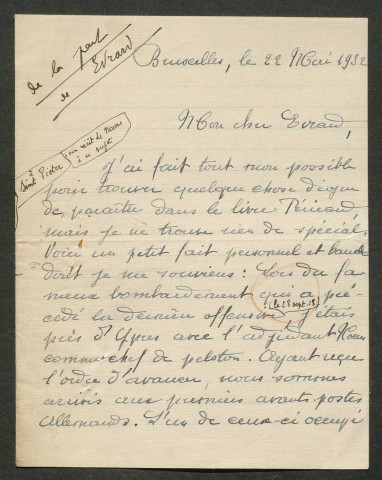 de la part
de Evrard
Bruxelles, le 22 Mai 1932
Mon cher Evrard,
à
Saint Pieter
son récit de
à ce sujet
J'ai fait tout mon possible
pour trouver quelque chose digne
de paraître dans le livre
mais je ne trouve rien de spécial.
Voici un petit fait personnel et banal
dont je me souviens : Lors du fa-
meux bombardement qui a pré-
(le 28 sept. 18)
cédé la dernière offensive j'étais
près d'Ypres avec l'adjudant
comme chef de peloton. Ayant reçu
l'ordre d'avancer, nous sommes
arrivés aux premiers avants-postes
Allemands. L'un de ceux-ci occupé